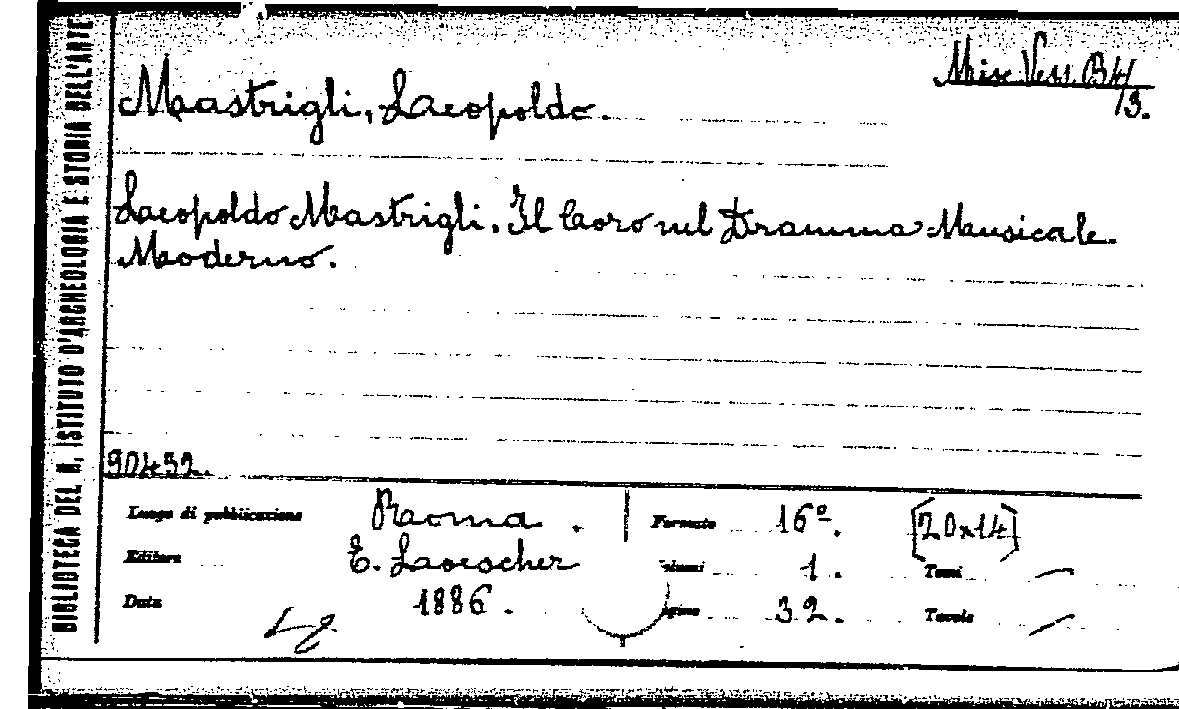 BIBLIOTECA DEL R. ISTITUTO D'ARCHEOLOGIA E STORIA DELL'ARTE
Misc. Vess. B4/3.
Mastrigli, Leopoldo.
Leopoldo Mastrigli. Il Coro nel Dramma Musicale
Moderno.
90452.
Luogo di pubblicazione Roma. Formato 16º. [20x14]
Editore E. Loescher Volumi 1. Tomi /
Data 1886. Pagine 32. Tavole /